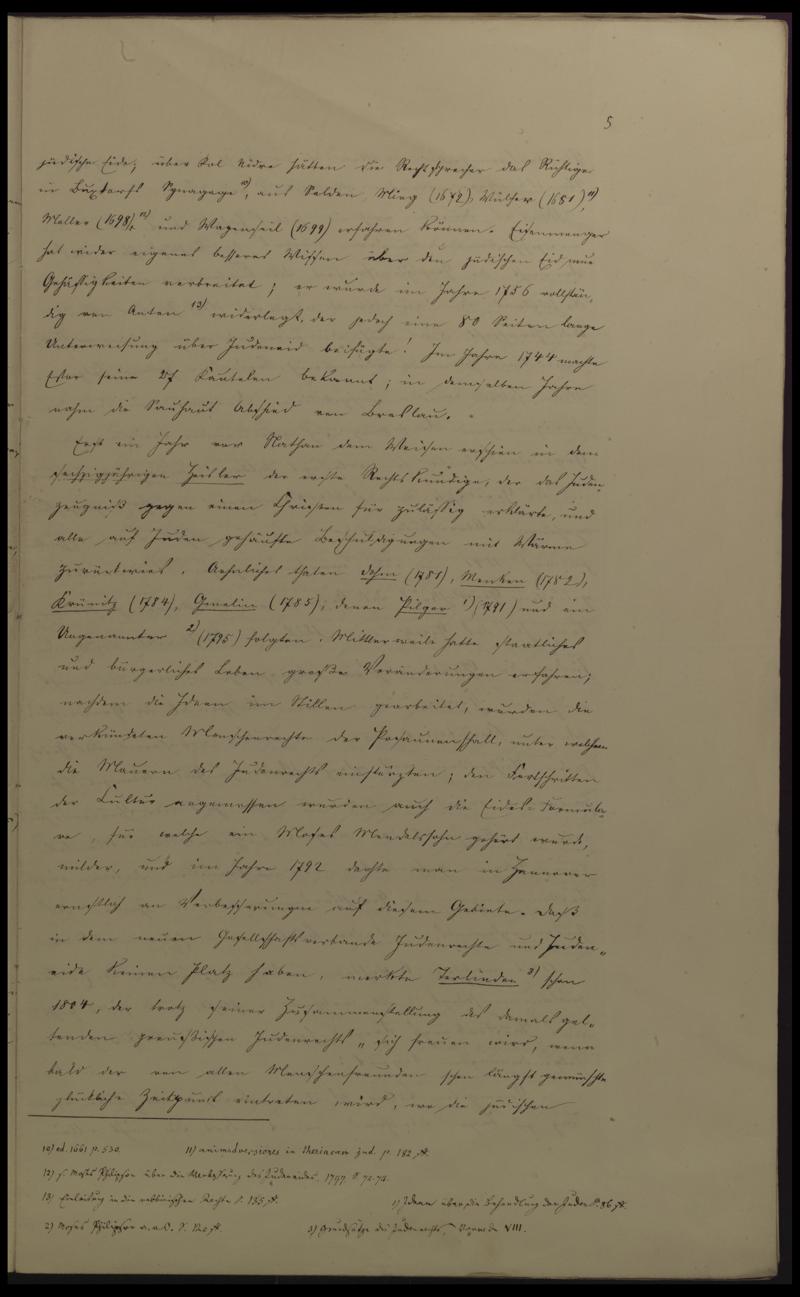 5
jüdische Eide; über Kol Nidre hätten die Rechtssprecher das Richtige
in Buxtorfs Synagoge 10), aus Selden Mieg (1672), Wülfer (1681) 11),
Moller (1698), 12) und Wagenseil (1699) erfahren können. Eisenmenger
hat wider eigenes besseres Wissen über den jüdischen Eid nur
Gehässigkeiten verbreitet; er wurde im Jahre 1756 vollstän-
dig von Anton 13) widerlegt, der jedoch eine 80 Seiten lange
Unterweisung über Judeneid beifügte! Im Jahre 1744 machte
Estor seine Kautelen bekannt; in demselben Jahre
nahm die Sauhaut Abschied von Breslau.
Erst ein Jahr vor Nathan dem Weisen erschien in dem
sechzigjährigen Heisler der erste Rechtskundige, der das Juden-
zeugniß gegen einen Christen für zulässig erklärte, und
alle auf Juden gehäufte Beschuldigungen mit Wärme
zurückwies. Aehnliches thaten Dohm (1781), Menken (1782),
Krünitz (1784), Gmelin (1785); denen Pilger 1) (1791) und ein
Ungenannter 2) (1795) folgten. Mittlerweile hatte staatliches
und bürgerliches Leben große Veränderungen erfahren;
nachdem die Ideen im Stillen gearbeitet, wurden die
verkündeten Menschenrechte der Posaunenschall, unter welchem
die Mauern des Judenrechts einstürzten; den Fortschritten
der Cultur angemessen wurden auch die Eides-Formula-
re, für welche ein Moses Mendelssohn gehört wurde,
milder, und im Jahre 1792 dachte man in Hannover
ernstlich an Verbesserungen auf diesem Gebiete. Daß
in dem neuen Gesellschaftsverbande Judenrechte und Juden-
eide keinen Platz haben, merkte Terlinden 3) schon
1804, der trotz seiner Zusammenstellung des damals gel-
tenden preußischen Judenrechts „sich freuen wird, wenn
bald der von allen Menschenfreunden schon längst gewünschte
glückliche Zeitpunkt eintreten wird, wo die jüdischen
10) ed. 1661 p. 530. 11) animadversiones in theriacam jud. p. 182 ff.
12) s. Moses Philipson über die Verbesserung des Judeneides. 1797. S. 72. 74.
13) Einleitung in die rabbinischen Rechte S. 135 ff. 1) Ideen über die Behandlung der Juden S. 86 ff.
2) Moses Philipson a. a. O. S. 120 ff. 3) Grundsätze des Judenrechts, Vorrede VIII.